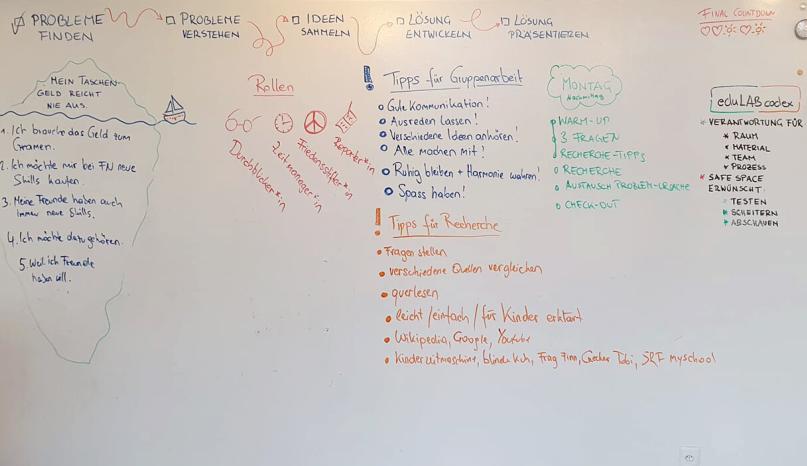 PROBLEME
FINDEN
PROBLEME
VERSTEHEN
IDEEN
SAMMELN
LÖSUNG
ENTWICKELN
LÖSUNG
PRÄSENTIEREN
FINAL COUNTDOWN
MEIN TASCHEN-
GELD REICHT
NIE AUS.
1. Ich brauche das Geld zum
Gamen.
2. Ich möchte mir bei FN neue
Skills kaufen.
3. Meine Freunde haben auch
immer neue Skills.
4. Ich möchte dazugehören.
5. Weil ich Freunde
haben will.
Rollen
Durchblicker*in
Zeitmanager*in
Friedensstifter*in
Reporter*in
! Tipps für Gruppenarbeit
Gute Kommunikation!
Ausreden lassen!
Verschiedene Ideen anhören!
Alle machen mit!
Ruhig bleiben + Harmonie wahren!
Spass haben!
! Tipps für Recherche
Fragen stellen
verschiedene Quellen vergleichen
querlesen
leicht/einfach/für Kinder erklärt
Wikipedia, Google, Youtube
Kinderzeitmaschine, blinde Kuh, Frag Finn, Checker Tobi, SRF myschool
MONTAG
Nachmittag
WARM-UP
3 FRAGEN
RECHERCHE-TIPPS
RECHERCHE
AUSTAUSCH PROBLEM-URSACHE
CHECK-OUT
eduLAB codex
* VERANTWORTUNG FÜR
* RAUM
* MATERIAL
* TEAM
* PROZESS
* SAFE SPACE
ERWÜNSCHT:
* TESTEN
* SCHEITERN
* ABSCHAUEN